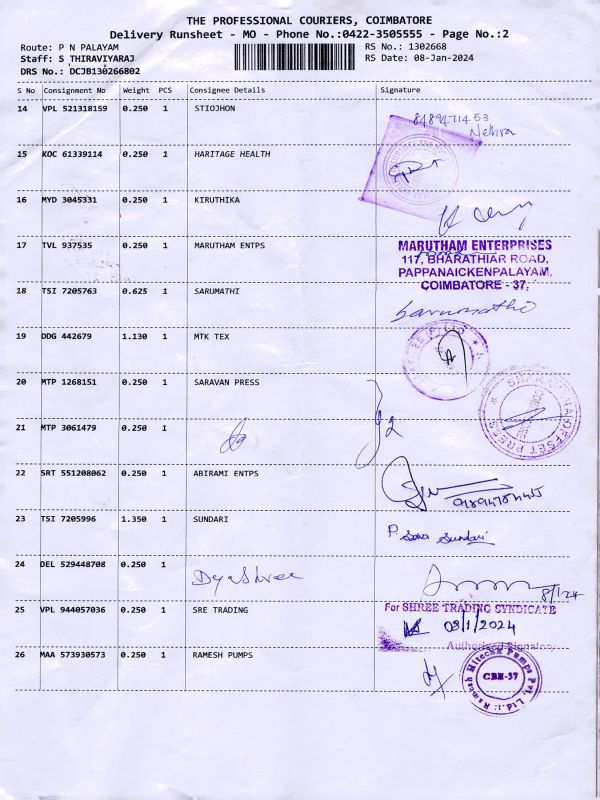 THE PROFESSIONAL COURIERS, COIMBATORE
Delivery Runsheet - MO - Phone No.:0422-3505555 - Page No.:2
Route: P N PALAYAM
RS No.: 1302668
Staff: S THIRAVIYARAJ
RS Date: 08-Jan-2024
DRS No.: DCJB130266802
S No Consignment No Weight PCS Consignee Details Signature
14 VPL 521318159 0.250 1 STIOJHON
Nethra
15 KOC 61339114 0.250 1 HARITAGE HEALTH
16 MYD 3045331 0.250 1 KIRUTHIKA
17 TVL 937535 0.250 1 MARUTHAM ENTPS
MARUTHAM ENTERPRISES
117, BHARATHIAR ROAD,
PAPPANAICKENPALAYAM,
COIMBATORE - 37.
18 TSI 7205763 0.625 1 SARUMATHI
Sarumathi
19 DDG 442679 1.130 1 MTK TEX
20 MTP 1268151 0.250 1 SARAVAN PRESS
OFFSET PRESS
21 MTP 3061479 0.250 1
22 SRT 551208062 0.250 1 ABIRAMI ENTPS
23 TSI 7205996 1.350 1 SUNDARI
P. Sona Sundari
24 DEL 529448708 0.250 1 Dyashree
8/1/24
25 VPL 944057036 0.250 1 SRE TRADING
For SHREE TRADING SYNDICATE
08/1/2024
Authorised Signatory
26 MAA 573930573 0.250 1 RAMESH PUMPS
Ramesh Hitechh Pumps Pvt. Ltd.
CBE-37